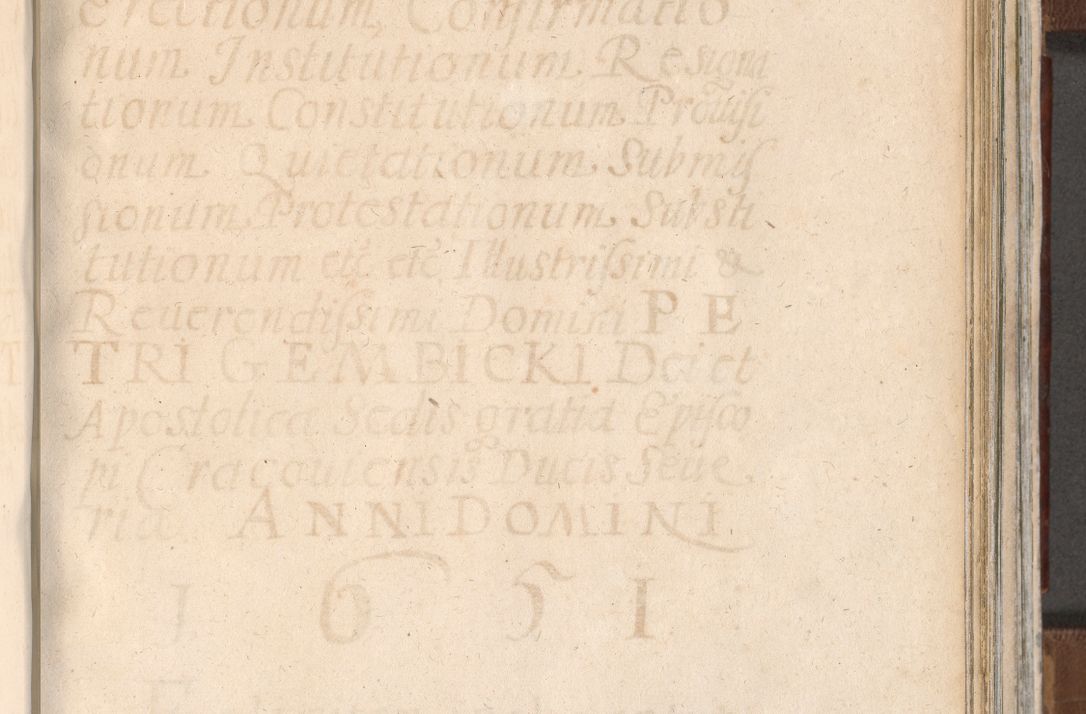 erectionum, Confirmatio
num Institutionum Resigna
tionum Constitutionum Provisi
onum Quietationum Submis
sionum Protestationum Substi
tutionum etc etc Illustrissimi &
Reuerendissimi Domini PE
TRI GEMBICKI Dei et
Apostolica Sedis gratia Episco
pi Cracouiensis Ducis Seue
ria ANNI DOMINI
1651